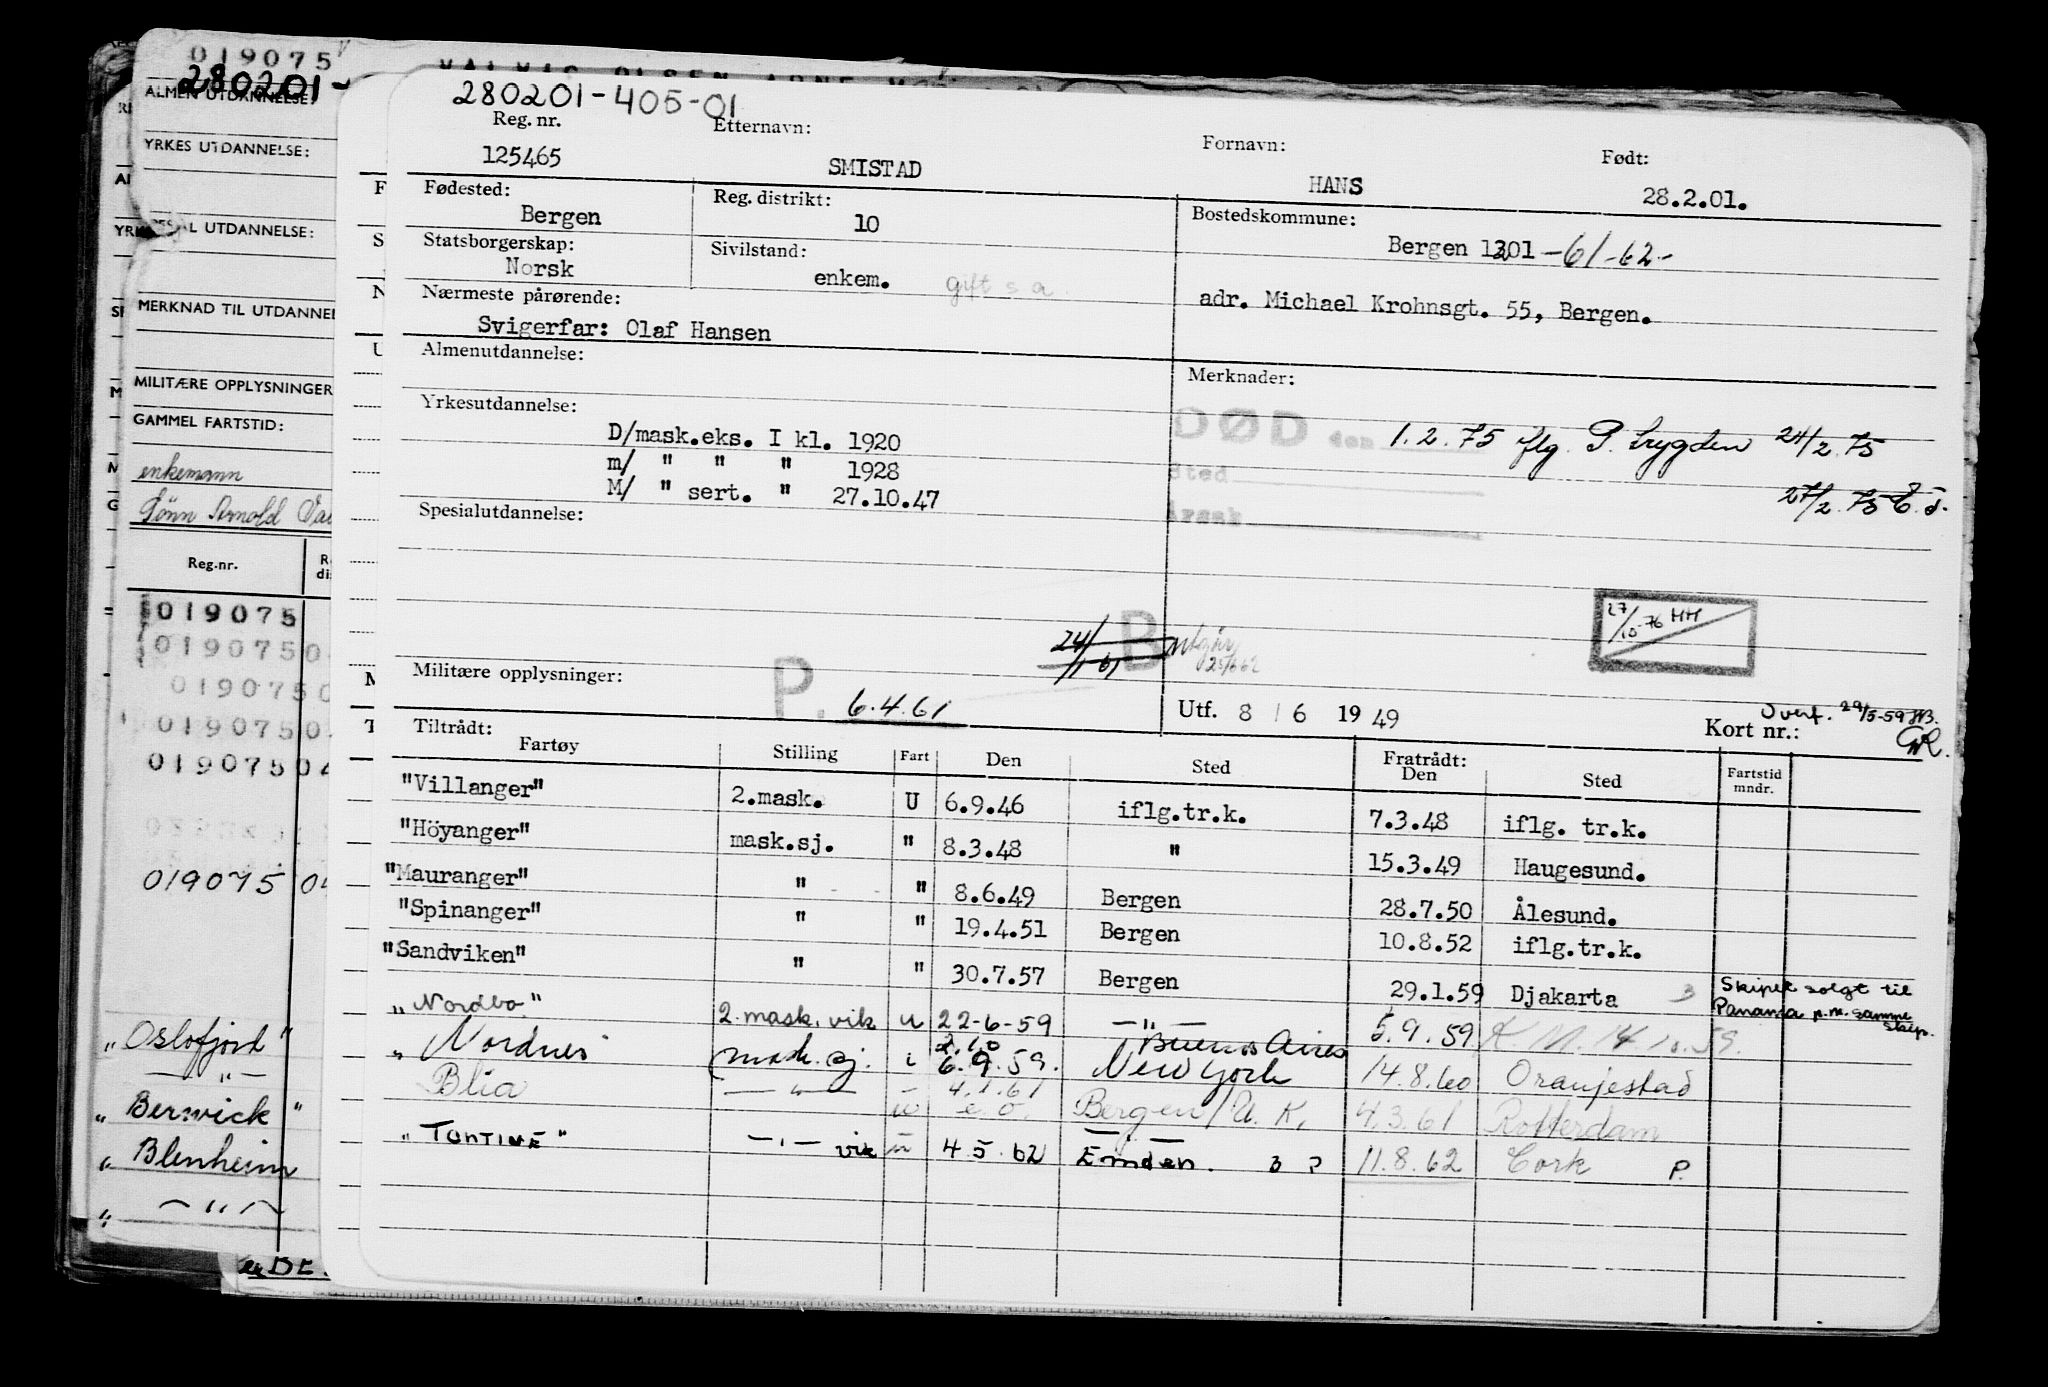 019075
280201-
ALMEN UTDANNELSE:
YRKES UTDANNELSE:
UTDANNELSE:
MERKNAD TIL UTDANNEL
MILITÆRE OPPLYSNINGER
GAMMEL FARTSTID:
enkemann
Sønn Arnold
Reg.nr.
019075
019075 0
019075 0
019075 0
019075 04
019075 04
"Oslofjord"
— " —
"Berwick"
"Blenheim
" — " —
280201-405-01
Reg. nr. Etternavn: Fornavn: Født:
125465 SMISTAD HANS 28.2.01.
Fødested: Reg. distrikt: Bostedskommune:
Bergen 10 Bergen 1301 -61-62-
Statsborgerskap: Sivilstand:
Norsk enkem. gift s a.
Nærmeste pårørende: adr. Michael Krohnsgt. 55, Bergen.
Svigerfar: Olaf Hansen
Almenutdannelse: Merknader:
Yrkesutdannelse: DØD den 1.2.75 flg. P. trygden 24/2.75
D/mask.eks. I kl. 1920 Sted
m/ " " " 1928 Årsak 27/2.75
M/ " sert. " 27.10.47
Spesialutdannelse:
27/10-76 HH
24/1 61 B utgår 25/6 62
Militære opplysninger: P. 6.4.61 Utf. 8 / 6 1949 Kort nr.: Overf. 29/5-59
Tiltrådt: Fratrådt:
Fartøy Stilling Fart Den Sted Den Sted Fartstid mndr.
"Villanger" 2.mask. U 6.9.46 iflg.tr.k. 7.3.48 iflg. tr.k.
"Höyanger" mask.sj. " 8.3.48 " 15.3.49 Haugesund.
"Mauranger" " " 8.6.49 Bergen 28.7.50 Ålesund.
"Spinanger" " " 19.4.51 Bergen 10.8.52 iflg.tr.k.
"Sandviken" " " 30.7.57 Bergen 29.1.59 Djakarta 3 Skipet solgt til Panama p.m. samme skip.
"Nordbo" 2.mask.vik u 22-6-59 — " — 5.9.59 K.M. 14 10.59.
" Nordnes mask.sj. u 2.10 6.9.59. Buenos Aires New York 14.8.60 Oranjestad
Blia — " — u 4.1.61 e.o. Bergen/U.K. 4.3.61 Rotterdam
"TONTINE" — " — vik u 4.5.62 Emden. 3 P 11.8.62 Cork P.